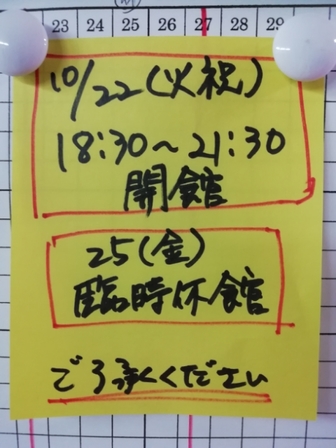 23 24 25 26 27 28 29
10/22(火祝)
18:30〜21:30
開館
25(金)
臨時休館
ご了承ください